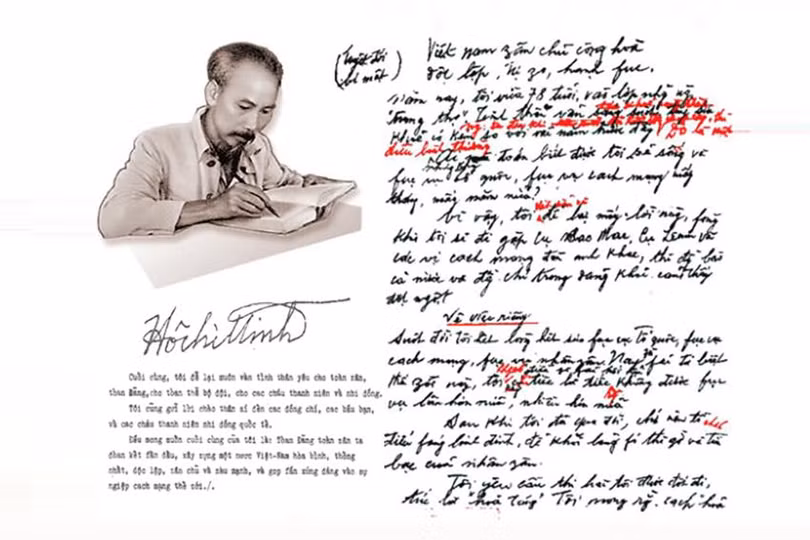 Hồ Chí Minh
Cuối cùng, tôi để lại muôn vàn tình thân yêu cho toàn zân,
toàn Đảng, cho toàn thể bộ đội, cho các cháu thanh niên và nhi đồng.
Tôi cũng gửi lời chào thân ái đến các đồng chí, các bầu bạn,
và các cháu thanh niên nhi đồng quốc tế.
Điều mong muốn cuối cùng của tôi là: Toàn Đảng toàn zân ta
đoàn kết fấn đấu, xây zựng một nước Việt-Nam hòa bình, thống
nhất, độc lập, zân chủ và zàu mạnh, và góp fần xứng đáng vào sự
ngiệp cách mạng thế zới./.
(tuyệt đối
bí mật)
Việt nam zân chủ cộng hoà
độc lập, tự zo, hạnh fúc.
Năm nay, tôi vừa 78 tuổi, vào lớp những người
"trung thọ". Tinh thần vẫn
khoẻ có kém so với vài năm trước đây. Đó là một
điều bình thường.
toán biết được tôi còn sống và
fục vụ tổ quốc, fục vụ cách mạng mấy
tháng, mấy năm nữa?
Vì vậy, tôi để lại mấy lời này, fòng
khi tôi sẽ đi gặp cụ Các Mác, cụ Lênin và
các vị cách mạng đàn anh khác, thì đồng bào
cả nước và đồng chí trong đảng khỏi cảm thấy
đột ngột
Về việc riêng
Suốt đời tôi hết lòng hết sức fục vụ Tổ quốc, fục vụ
cách mạng, fục vụ nhân zân. Nay zù fải từ biệt
thế zới này, tôi không có điều gì fải hối hận, chỉ tiếc là tiếc không được fục
vụ lâu hơn nữa, nhiều hơn nữa
Sau khi tôi đã qua đời, chớ nên tổ chức
điếu fúng linh đình, để khỏi lãng fí thì giờ và tiền
bạc của nhân zân.
Tôi yêu cầu thi hài tôi được đốt đi,
tức là "hoả táng". Tôi mong rằng cách "hoả